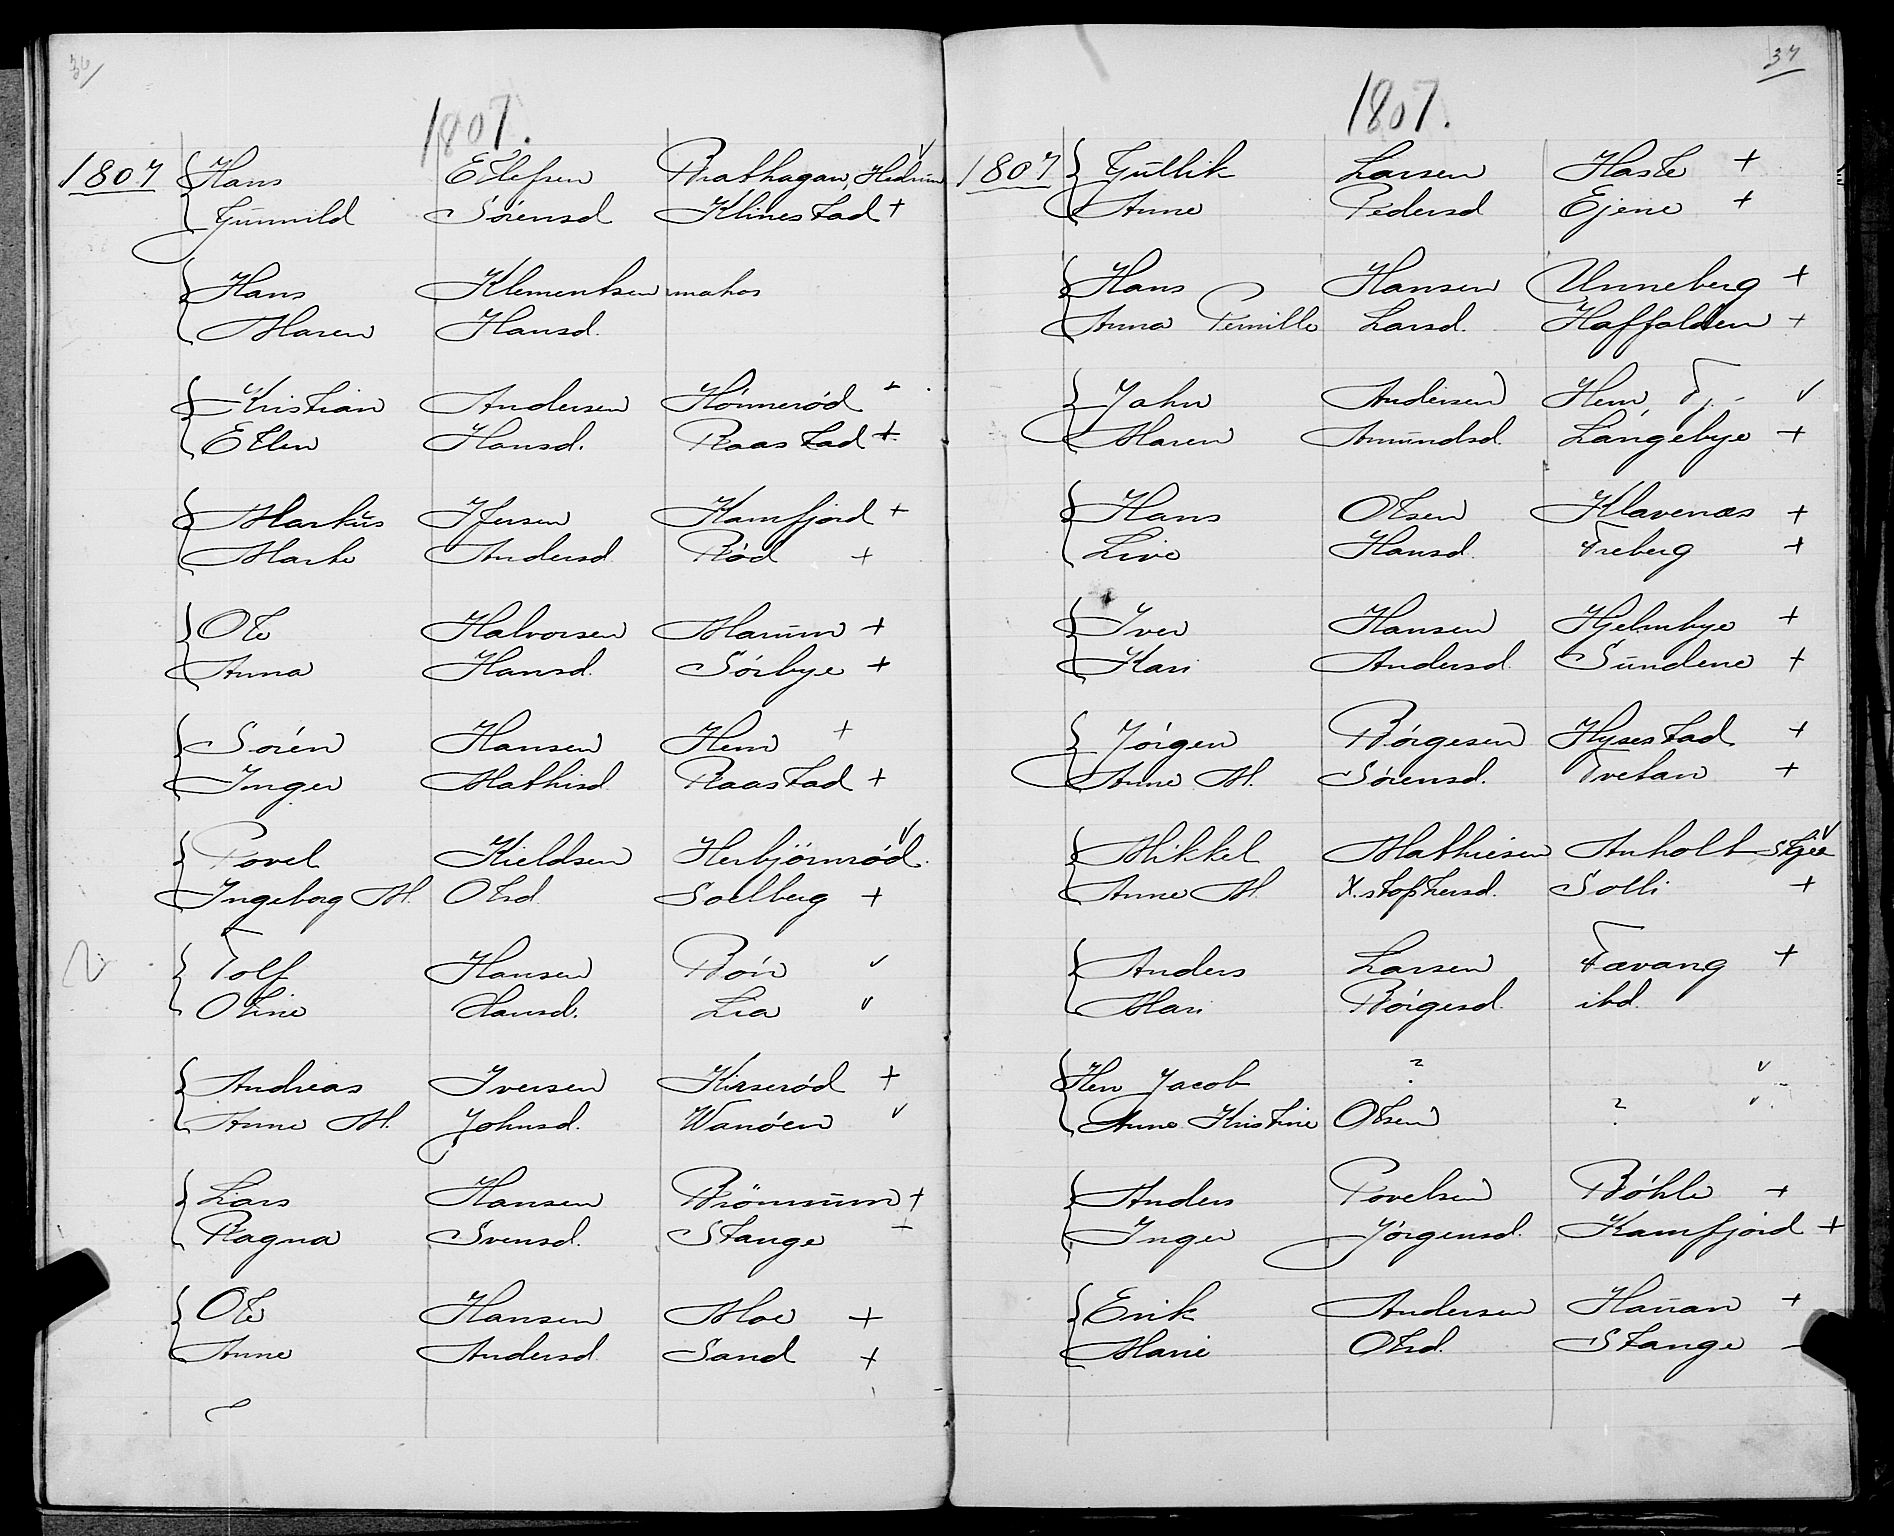 36
1807.
1807 Hans Ellefsen Brathagan, Hedrum v
Gunnild Sörensd Klinestad +
Hans Klementsen
Maren Hansd.
Kristian Andersen Hönnerød +
Ellen Hansd. Raastad +
Markus Ifersen Kamfjord +
Marte Andersd. Rød +
Ole Halvorsen Marum +
Anna Hansd. Sörbye +
Sören Hansen Hem +
Inger Mathisd Raastad +
Povel Kieldsen Herbjörnröd. v
Ingeborg M. Olsd. Solberg +
Tolf Hansen Bön v
Oline Hansd. Lia v
Andreas Iversen Hirserød +
Anne M. Johnsd. Wanöen v
Lars Hansen Brömsum +
Ragna Svensd. Stange +
Ole Hansen Moe +
Anne Andersd Sand +
37
1807.
1807 Gullik Larsen Hasle +
Anne Pedersd Ejene +
Hans Hansen Unneberg +
Anna Pernille Larsd. Haffallen +
John Andersen Hem, Tj. v
Maren Amundsd. Langebye +
Hans Olsen Klavenæs +
Live Hansd. Freberg +
Iver Hansen Hjelmbye +
Kari Andersd. Sundene +
Jörgen Börgesen Hysestad +
Anne M. Sörensd. Tvetan +
Mikkel Mathiesen Anholt Skjee v
Anne M. X.stophersd. Solli +
Anders Larsen Fævang +
Mari Börgesd. ibd.
Hen Jacob ? v
Anne Kristine Olsen ? v
Anders Povelsen Böhle +
Inger Jørgensd. Kamfjord +
Erik Andersen Hauan +
Marie Olsd. Stange